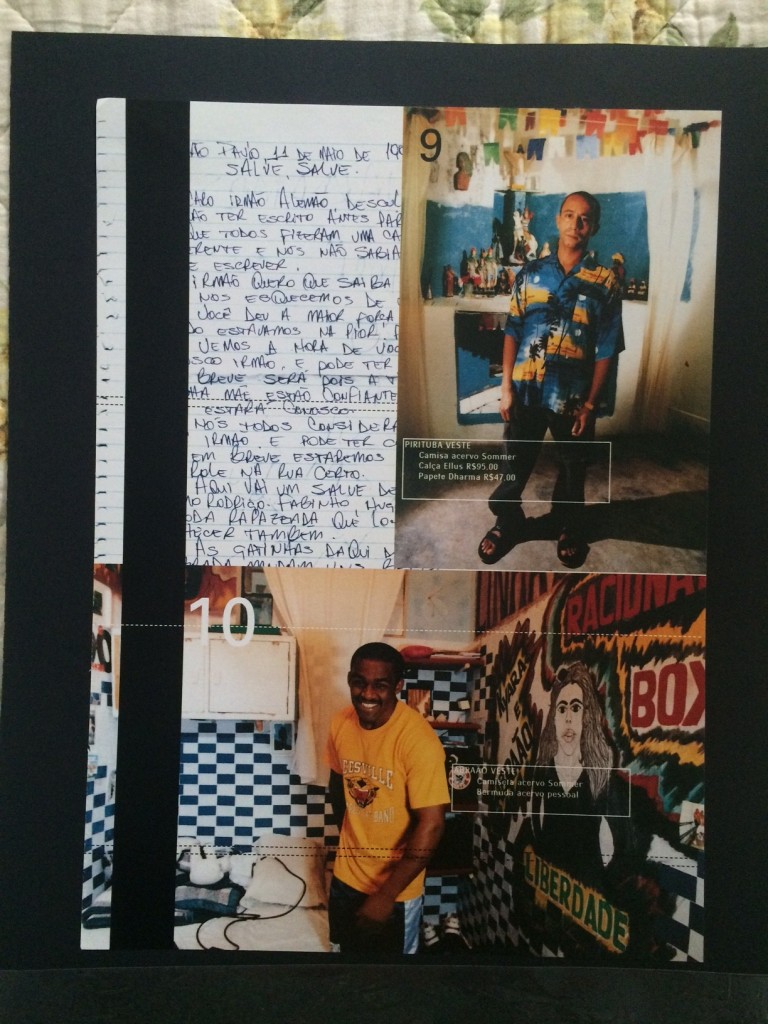 ÃO PAULO, 11 DE MAIO DE 199
SALVE, SALVE.
ARO IRMÃO ALEMÃO, DESCUL
ÃO TER ESCRITO ANTES PAR
UE TODOS FIZERAM UMA CA
ERENTE E NÓS NÃO SABIA
E ESCREVER.
IRMÃO QUERO QUE SAIBA
NOS ESQUECEMOS DE
VOCÊ DEU A MAIOR FORÇA
DO ESTÁVAMOS NA PIOR.
VEMOS A HORA DE VOC
OSCO IRMÃO, E PODE TER
BREVE SERÁ POIS A T
HA MÃE ESTÃO CONFIANTE
ESTARÁ CONOSCO.
NÓS TODOS CONSIDERA
IRMÃO. E PODE TER C
EM BREVE ESTAREMOS
ROLE NA RUA CERTO.
AQUI VAI UM SALVE DE
RODRIGO. FABINHO
ODA RAPAZEADA QUE
HECER TAMBEM.
AS GATINHAS DAQUI D
MANDAM UNS
9
PIRITUBA VESTE
Camisa acervo Sommer
Calça Ellus R$95.00
Papete Dharma R$47,00
10
VESTE
Camiseta acervo Sommer
Bermuda acervo pessoal
BAND
RACIONA
BOX
MARA E
LIBERDADE